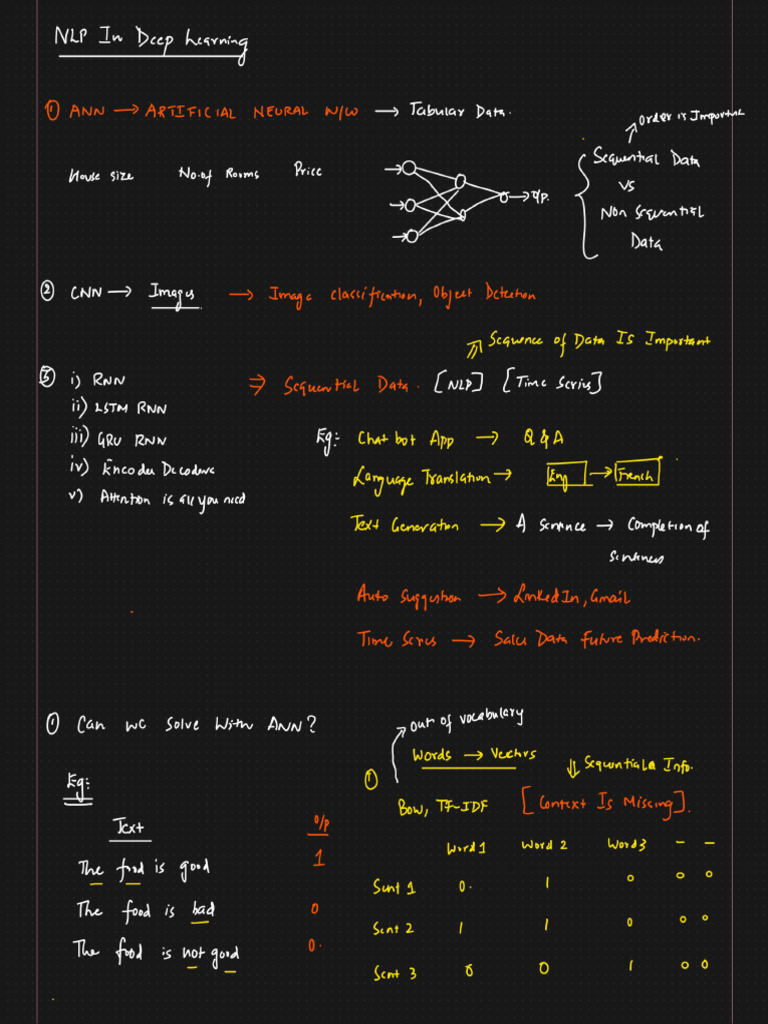 NLP In Deep Learning
① ANN → ARTIFICIAL NEURAL N/W → Tabular Data.
House size No. of Rooms Price
→ O/p.
Order is Important
Sequential Data
vs
Non Sequential
Data
② CNN → Images → Image classification, Object Detection
Sequence of Data Is Important
③ i) RNN ⇒ Sequential Data. [NLP] [Time Series]
ii) LSTM RNN
iii) GRU RNN
iv) Encoder Decoders
v) Attention is all you need
Eg:- Chat bot App → Q & A
Language Translation → Eng → French
Text Generation → A sentence → Completion of
sentences
Auto suggestion → LinkedIn, Gmail
Time Series → Sales Data Future Prediction.
① Can we solve with ANN?
Eg:
Text O/p
The food is good 1
The food is bad 0
The food is not good 0.
out of vocabulary
① Words → Vectors
Sequential Info.
BOW, TF-IDF [Context Is Missing].
Word 1 Word 2 Word 3 – –
Sent 1 0. 1 0 0 0
Sent 2 1 1 0 0 0
Sent 3 0 0 1 0 0